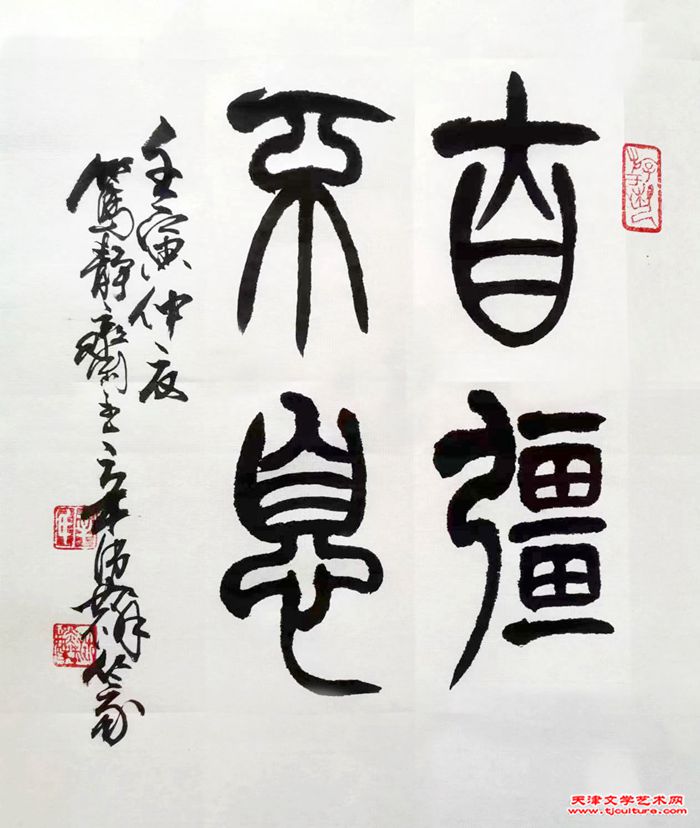 自彊
不息
壬寅仲夏
篤靜齋主
天津文学艺术网
www.tjculture.com